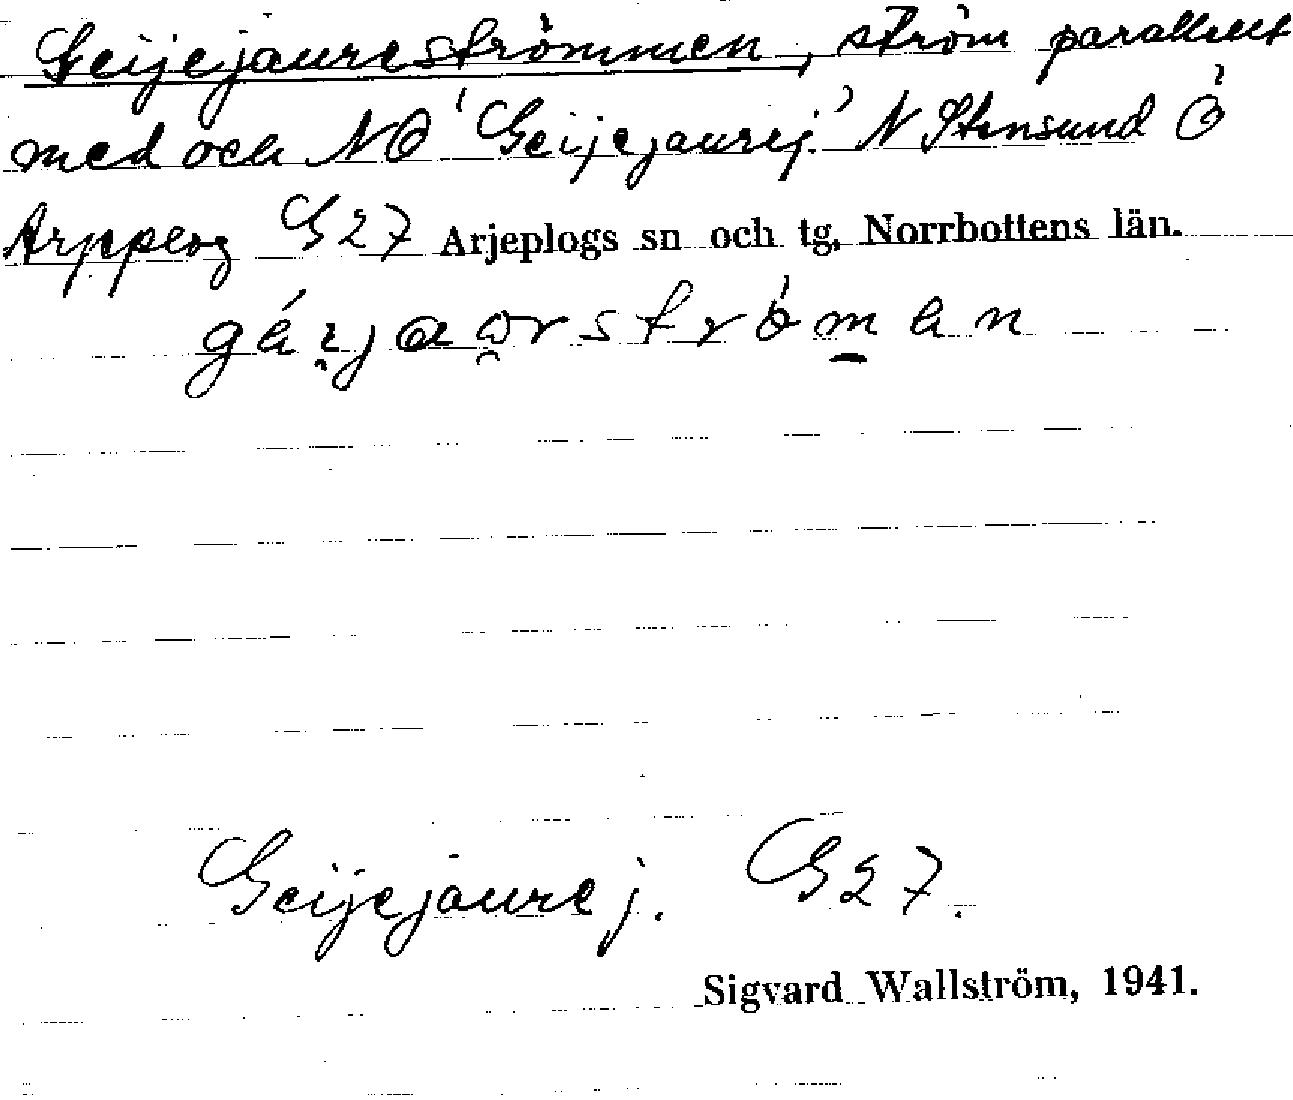 Geijejaureströmmen, ström parallellt
med och NO 'Geijejaurej.' N Stensund Ö
Arjeplog G27 Arjeplogs sn och tg, Norrbottens län.
géi̯jaɷ̯rströ̀m̲en
Geijejaurej. G27.
Sigvard Wallström, 1941.